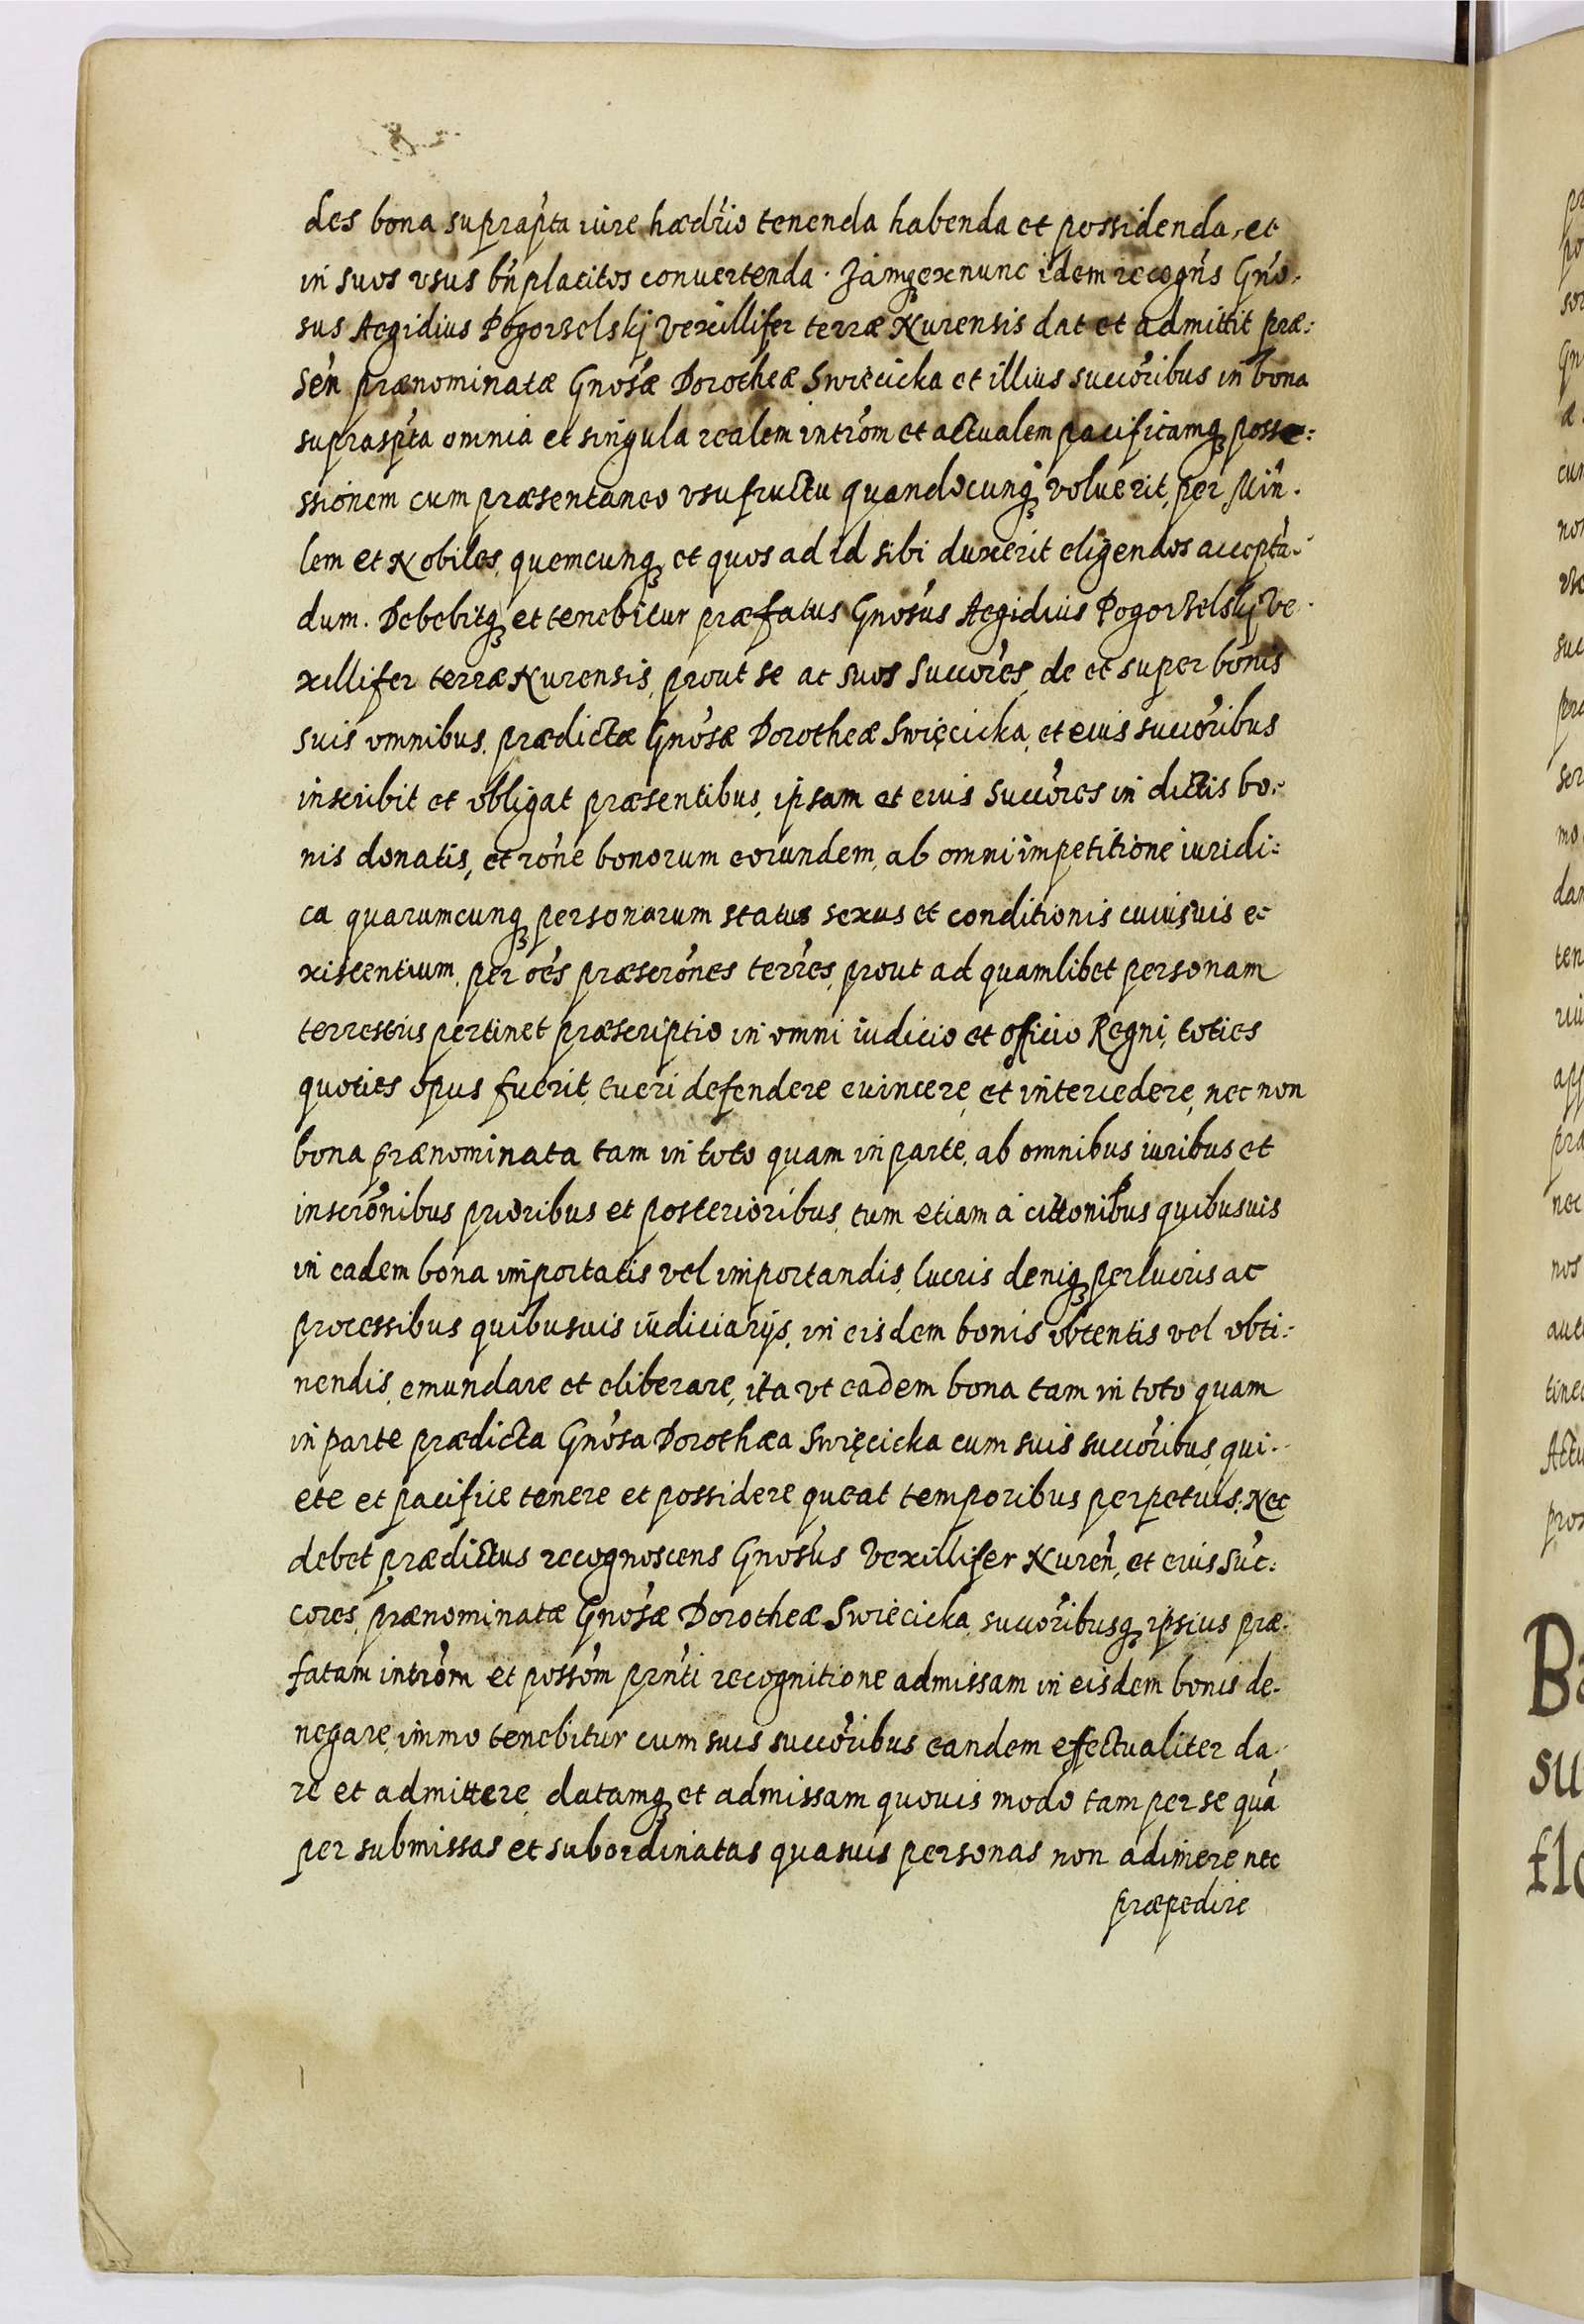 des bona suprapta iure hædrio tenenda habenda et possidenda, et
in suos vsus bn̄placitos conuertenda. Jamq3 ex nunc idem recogns Gno-
sus Aegidius Pogorzelskj Vexillifer terræ Nurensis dat et admittit præ:
sen prænominatæ Gnosæ Dorotheæ Swięcicka et illius succoribus in bona
supraspta omnia et singula realem introm et actualem pacificamq3 posse:
ssionem cum præsentaneo vsufructu quandocunq3 voluerit, per Min-
lem et Nobiles, quemcunq3 et quos ad id sibi duxerit eligendos accepta-
dum. Debebitq3 et tenebitur præfatus Gnosus Aegidius Pogorzelskj Ve-
xillifer terræ Nurensis, prout se ac suos Succores, de et super bonis
suis omnibus, prædictæ Gnosæ Dorotheæ Swięcicka, et eius succoribus
inscribit et obligat præsentibus, ipsam et eius Succores in dictis bo-
nis donatis, et rone bonorum eorundem, ab omni impetitione iuridi:
ca quarumcunq3 personarum status sexus et conditionis cuiusuis e-
xistentium, per oēs præscrones terres, prout ad quamlibet personam
terrestris pertinet præscriptio in omni iudicio et officio Regni, toties
quoties opus fuerit, tueri defendere euincere, et intercedere, nec non
bona prænominata tam in toto quam in parte, ab omnibus iuribus et
inscronibus prioribus et posterioribus, tum etiam a cittonibus quibusuis
in eadem bona importatis vel importandis, lucris deniq3 perlucris ac
processibus quibusuis iudiciarijs, in eisdem bonis obtentis vel obti:
nendis, emundare et eliberare, ita vt eadem bona tam in toto quam
in parte prædicta Gnosa Dorothæa Swięcicka cum suis succoribus, qui-
ete et pacifice tenere et possidere queat temporibus perpetuis. Nec
debet prædictus recognoscens Gnosus Vexillifer Nuren, et eius Suc:
cores, prænominatæ Gnosæ Dorotheæ Swięcicka, succoribusq3 ipsius præ-
fatam introm et possom prnti recognitione admissam in eisdem bonis de-
negare, immo tenebitur cum suis succoribus eandem effectualiter da-
re et admittere, datamq3 et admissam quouis modo tam per se quā
per submissas et subordinatas quasuis personas non adimere nec
præpedire